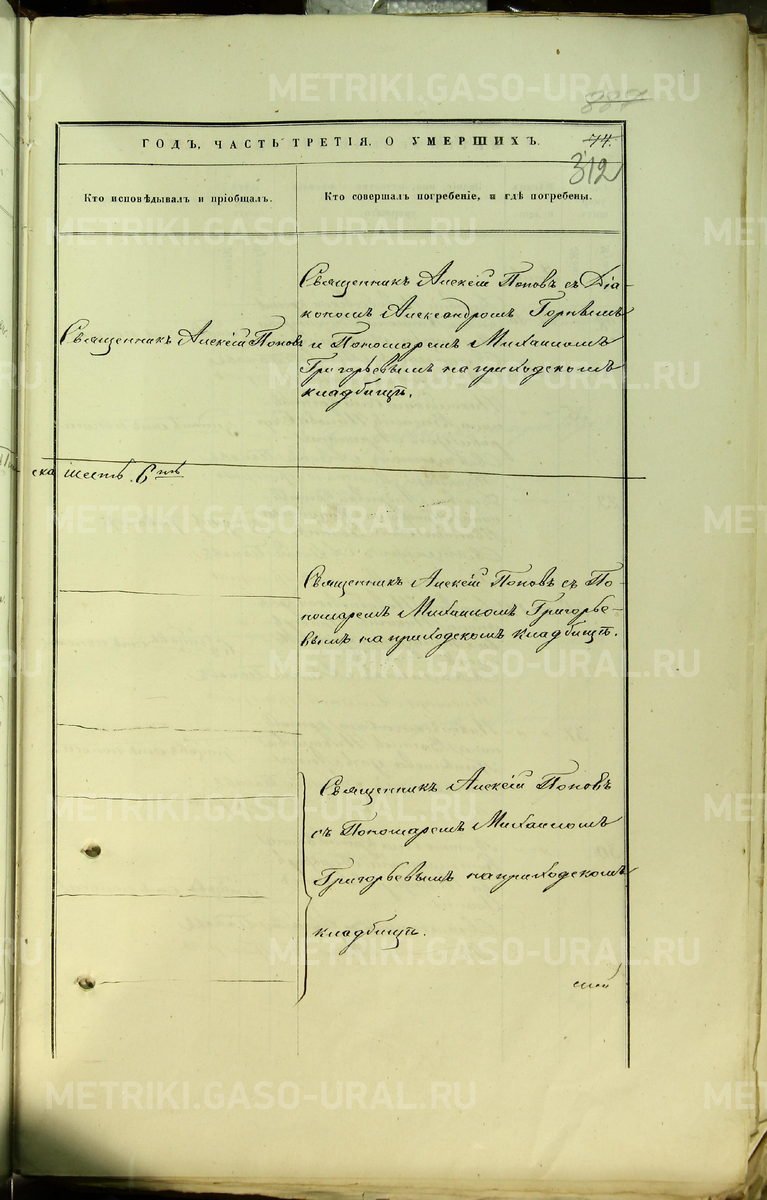 387
ГОДЪ, ЧАСТЬ ТРЕТІЯ, О УМЕРШИХЪ.
74.
312
Кто исповѣдывалъ и пріобщалъ.
Кто совершалъ погребеніе, и гдѣ погребены.
Священникъ Алексій Поповъ съ Діа-
кономъ Александромъ
Священникъ Алексій Поповъ
и Пономаремъ Михаиломъ
Григорьевымъ на приходскомъ
кладбищѣ.
ска шесть. 6.
Священникъ Алексій Поповъ съ По-
номаремъ Михаиломъ Григорье-
вымъ на приходскомъ кладбищѣ.
Священникъ Алексій Поповъ
съ Пономаремъ Михаиломъ
Григорьевымъ на приходскомъ
кладбищѣ.
METRIKI.GASO-URAL.RU